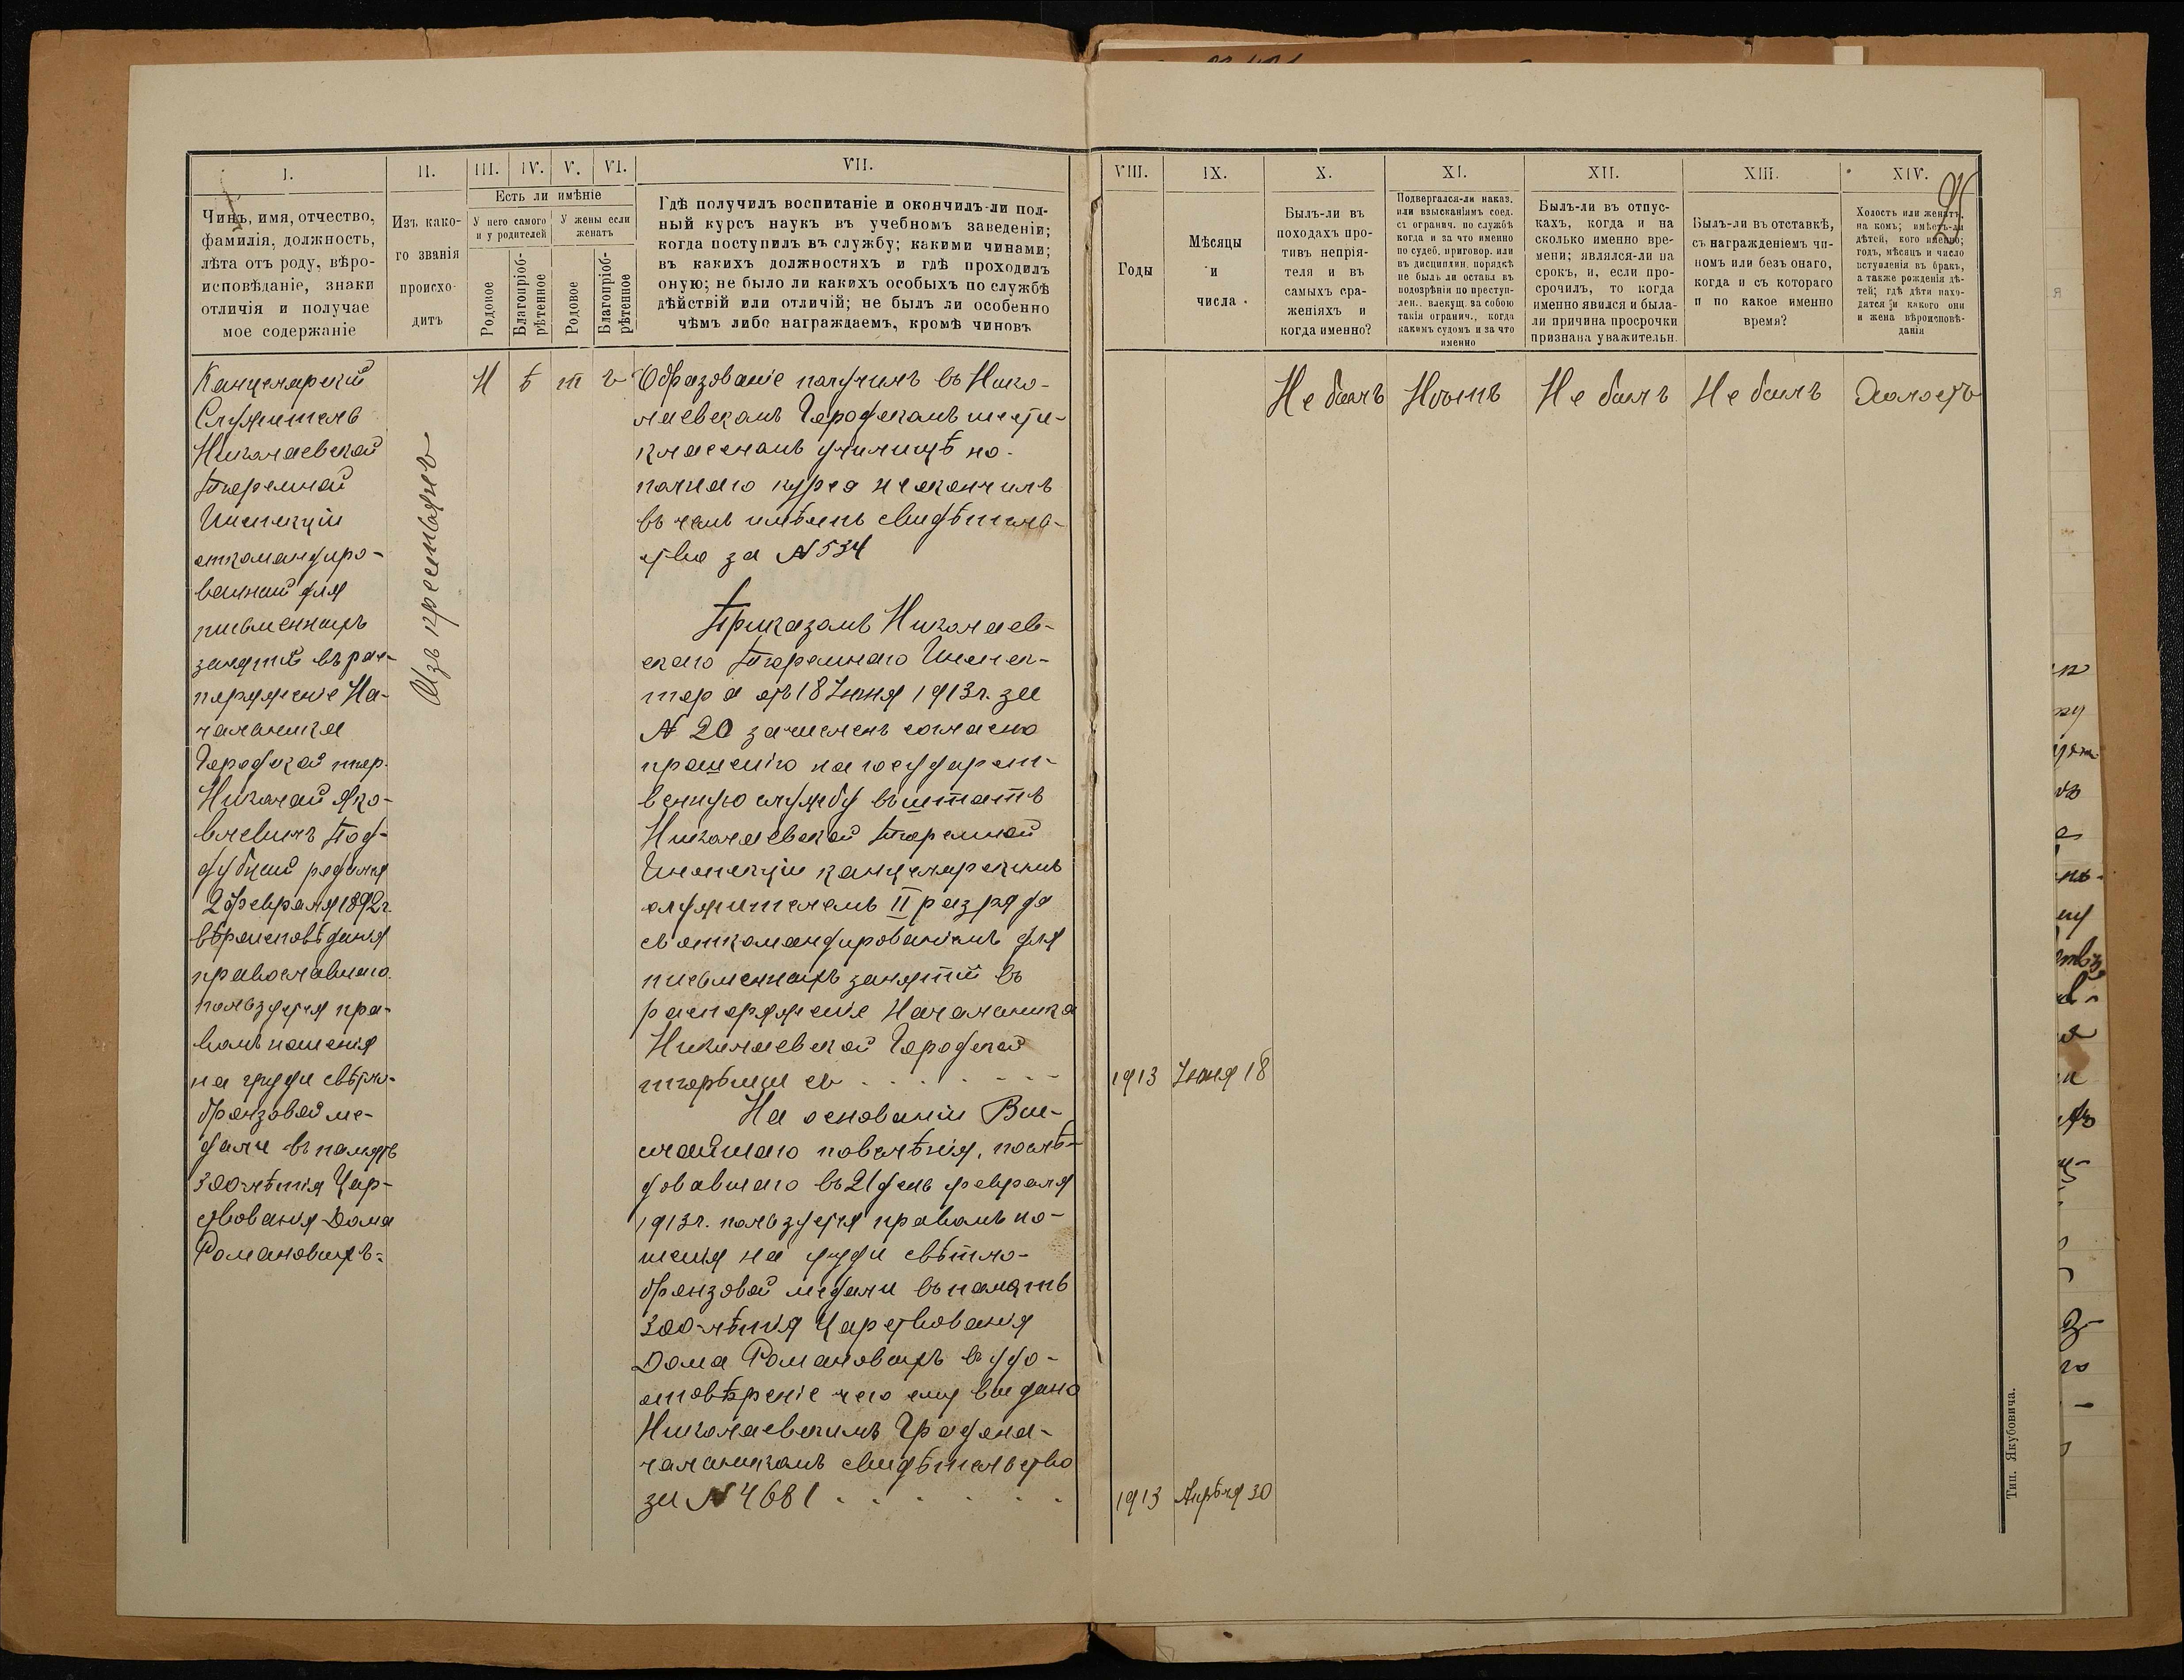 I.
Чинъ, имя, отчество,
фамилія, должность,
лѣта отъ роду, вѣро-
исповѣданіе, знаки
отличія и получае
мое содержаніе
II.
Изъ како-
го званія
происхо-
дитъ
III. IV. V. VI.
Есть ли имѣніе
У него самого
и у родителей
У жены если
женатъ
Родовое
Благопріоб-
рѣтенное
Родовое
Благопріоб-
рѣтенное
VII.
Гдѣ получилъ воспитаніе и окончилъ-ли пол-
ный курсъ наукъ въ учебномъ заведеніи;
когда поступилъ въ службу; какими чинами;
въ какихъ должностяхъ и гдѣ проходилъ
оную; не было ли какихъ особыхъ по службѣ
дѣйствій или отличій; не былъ ли особенно
чѣмъ либо награждаемъ, кромѣ чиновъ
VIII.
Годы
IX.
Мѣсяцы
и
числа.
X.
Былъ-ли въ
походахъ про-
тивъ непрія-
теля и въ
самыхъ сра-
женіяхъ и
когда именно?
XI.
Подвергался-ли наказ.
или взысканіямъ соед.
съ огранич. по службѣ
когда и за что именно
по судеб. приговор. или
въ дисциплин. порядкѣ
не былъ ли оставл въ
подозрѣніи по преступ-
лен.. влекущ. за собою
такія огранич., когда
какимъ судомъ и за что
именно
XII.
Былъ-ли въ отпус-
кахъ, когда и на
сколько именно вре-
мени; являлся-ли на
срокъ, и, если про-
срочилъ, то когда
именно явился и была-
ли причина просрочки
признана уважительн.
XIII.
Былъ-ли въ отставкѣ,
съ награжденіемъ чи-
номъ или безъ онаго,
когда и съ котораго
и по какое именно
время?
XIV.
Холостъ или женатъ,
на комъ; имѣетъ-ли
дѣтей, кого именно;
годъ, мѣсяцъ и число
вступленія въ бракъ,
а также рожденія дѣ-
тей; гдѣ дѣти нахо-
дятся и какого они
и жена вѣроисповѣ-
данія
Канцелярскій
Служитель
Николаевской
Тюремной
Инспекціи
откомандиро-
ванный для
письменныхъ
занятій въ рас-
поряженіе На-
чальника
Городской тюр.
Николай Яко-
влевичъ Под-
дубный родился
2 Февраля 1892 г.
вѣроисповѣданія
православнаго.
пользуется пра-
вомъ ношенія
на груди свѣтло-
бронзовой ме-
дали въ память
300-лѣтія Цар-
ствованія Дома
Романовыхъ.
Изъ крестьянъ
Н ѣ т ъ
Образованіе получилъ въ Нико-
лаевскомъ Городскомъ шести-
классномъ училищѣ но
полнаго курса не окончилъ
въ чемъ имѣетъ свидѣтель-
ство за № 534
Приказомъ Николаев-
скаго Тюремнаго Инспек-
тора отъ 18 Іюня 1913 г. за
№ 20 зачисленъ согласно
прошенію на государст-
венную службу въ штатъ
Николаевской Тюремной
Инспекціи канцелярскимъ
служителемъ II разряда
съ откомандированіемъ для
письменныхъ занятій въ
распоряженіе Начальника
Николаевской Городской
тюрьмы съ . . . . . . .
1913 Іюня 18
На основаніи Вы-
сочайшаго повелѣнія, послѣ-
довавшаго въ 21 день февраля
1913 г. пользуется правомъ но-
шенія на груди свѣтло-
бронзовой медали въ память
300-лѣтія Царствованія
Дома Романовыхъ въ удо-
стовѣреніе чего ему выдано
Николаевскимъ Градона-
чальникомъ свидѣтельство
за № 4681 . . . . . .
1913 Апрѣля 30
Не былъ
Не былъ
Не былъ
Холостъ
Тип. Якубовича.